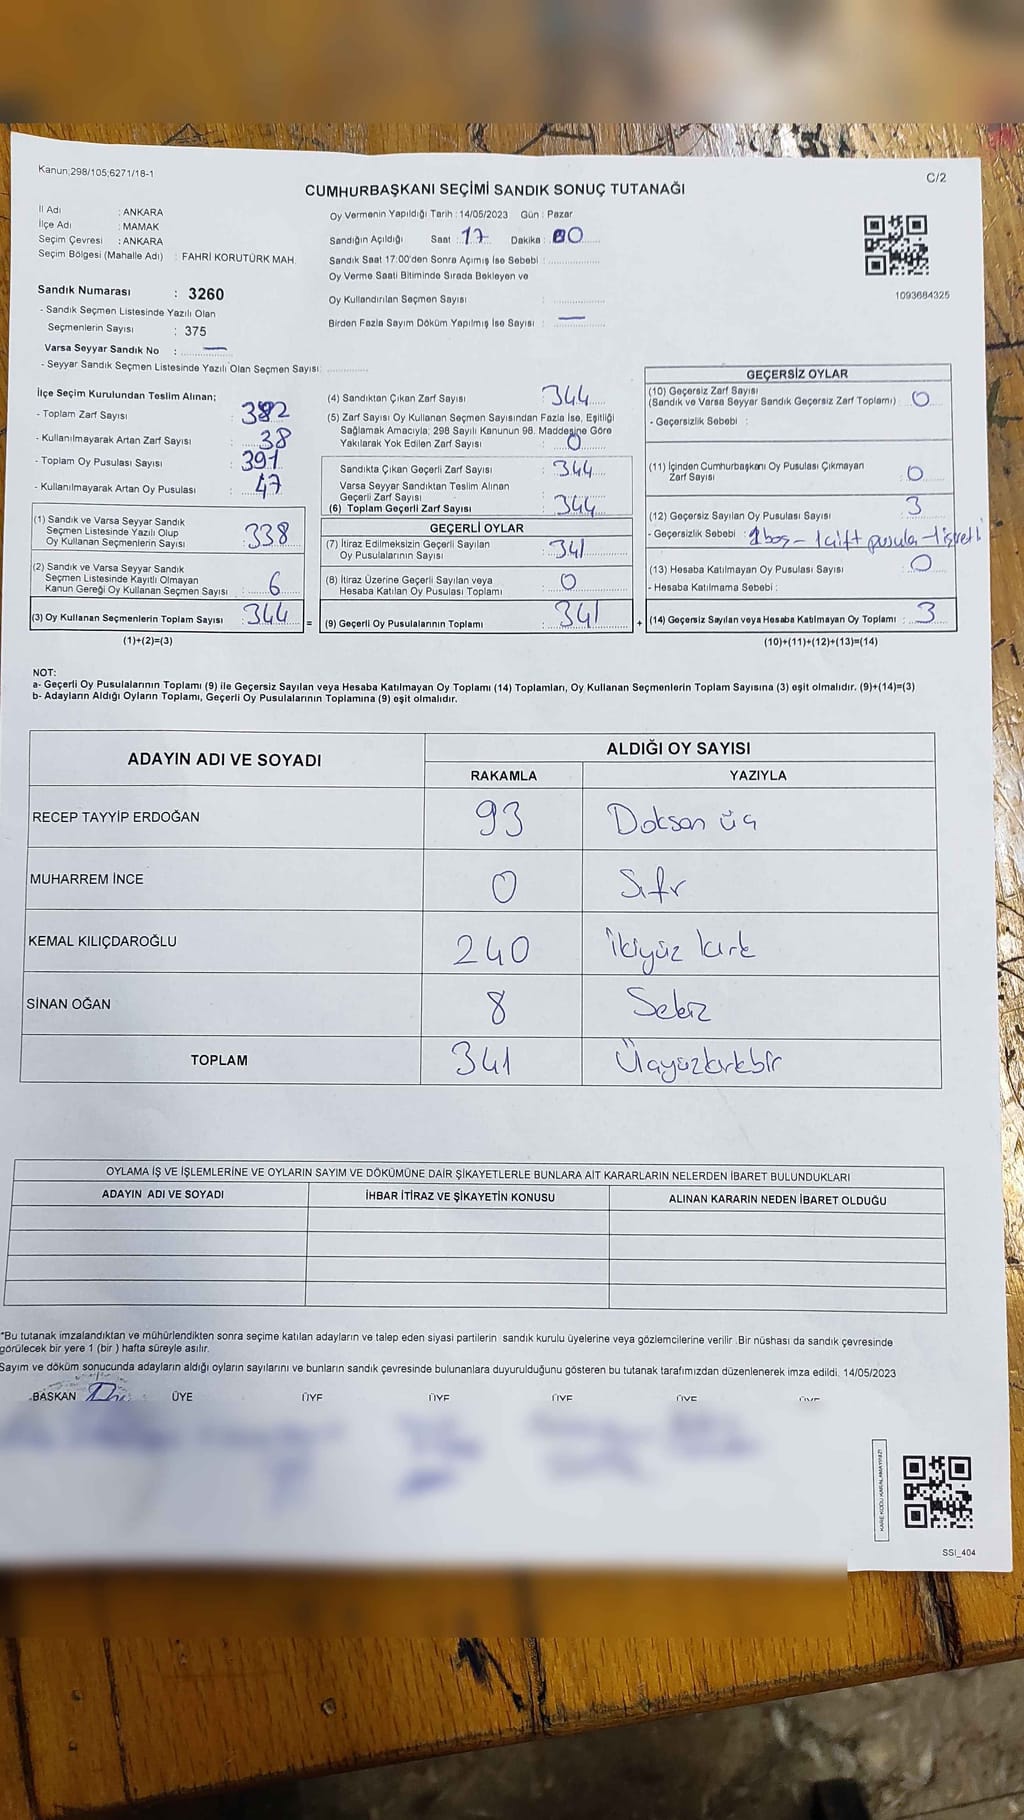 Kanun;298/105;6271/18-1
C/2
CUMHURBAŞKANI SEÇİMİ SANDIK SONUÇ TUTANAĞI
İl Adı : ANKARA
İlçe Adı : MAMAK
Seçim Çevresi : ANKARA
Seçim Bölgesi (Mahalle Adı) : FAHRİ KORUTÜRK MAH.
Oy Vermenin Yapıldığı Tarih : 14/05/2023 Gün : Pazar
Sandığın Açıldığı Saat : 17 Dakika : 00
Sandık Saat 17:00'den Sonra Açımış İse Sebebi :
Oy Verme Saati Bitiminde Sırada Bekleyen ve
Oy Kullandırılan Seçmen Sayısı :
Birden Fazla Sayım Döküm Yapılmış İse Sayısı : —
1093664325
Sandık Numarası : 3260
- Sandık Seçmen Listesinde Yazılı Olan
Seçmenlerin Sayısı : 375
Varsa Seyyar Sandık No : —
- Seyyar Sandık Seçmen Listesinde Yazılı Olan Seçmen Sayısı:
İlçe Seçim Kurulundan Teslim Alınan;
- Toplam Zarf Sayısı : 382
- Kullanılmayarak Artan Zarf Sayısı : 38
- Toplam Oy Pusulası Sayısı : 391
- Kullanılmayarak Artan Oy Pusulası : 47
(1) Sandık ve Varsa Seyyar Sandık
Seçmen Listesinde Yazılı Olup
Oy Kullanan Seçmenlerin Sayısı : 338
(2) Sandık ve Varsa Seyyar Sandık
Seçmen Listesinde Kayıtlı Olmayan
Kanun Gereği Oy Kullanan Seçmen Sayısı : 6
(3) Oy Kullanan Seçmenlerin Toplam Sayısı : 344
(1)+(2)=(3)
(4) Sandıktan Çıkan Zarf Sayısı : 344
(5) Zarf Sayısı Oy Kullanan Seçmen Sayısından Fazla İse, Eşitliği
Sağlamak Amacıyla; 298 Sayılı Kanunun 98. Maddesine Göre
Yakılarak Yok Edilen Zarf Sayısı : 0
Sandıkta Çıkan Geçerli Zarf Sayısı : 344
Varsa Seyyar Sandıktan Teslim Alınan
Geçerli Zarf Sayısı :
(6) Toplam Geçerli Zarf Sayısı : 344
GEÇERLİ OYLAR
(7) İtiraz Edilmeksizin Geçerli Sayılan
Oy Pusulalarının Sayısı : 341
(8) İtiraz Üzerine Geçerli Sayılan veya
Hesaba Katılan Oy Pusulası Toplamı : 0
= (9) Geçerli Oy Pusulalarının Toplamı : 341 +
GEÇERSİZ OYLAR
(10) Geçersiz Zarf Sayısı
(Sandık ve Varsa Seyyar Sandık Geçersiz Zarf Toplamı) : 0
- Geçersizlik Sebebi :
(11) İçinden Cumhurbaşkanı Oy Pusulası Çıkmayan
Zarf Sayısı : 0
(12) Geçersiz Sayılan Oy Pusulası Sayısı : 3
- Geçersizlik Sebebi : 1 boş - 1 çift pusula - 1 işretli
(13) Hesaba Katılmayan Oy Pusulası Sayısı : 0
- Hesaba Katılmama Sebebi :
(14) Geçersiz Sayılan veya Hesaba Katılmayan Oy Toplamı : 3
(10)+(11)+(12)+(13)=(14)
NOT:
a- Geçerli Oy Pusulalarının Toplamı (9) ile Geçersiz Sayılan veya Hesaba Katılmayan Oy Toplamı (14) Toplamları, Oy Kullanan Seçmenlerin Toplam Sayısına (3) eşit olmalıdır. (9)+(14)=(3)
b- Adayların Aldığı Oyların Toplamı, Geçerli Oy Pusulalarının Toplamına (9) eşit olmalıdır.
ADAYIN ADI VE SOYADI
ALDIĞI OY SAYISI
RAKAMLA YAZIYLA
RECEP TAYYİP ERDOĞAN 93 Doksan üç
MUHARREM İNCE 0 Sıfır
KEMAL KILIÇDAROĞLU 240 İkiyüz kırk
SİNAN OĞAN 8 Sekiz
TOPLAM 341 Üçyüzkırkbir
OYLAMA İŞ VE İŞLEMLERİNE VE OYLARIN SAYIM VE DÖKÜMÜNE DAİR ŞİKAYETLERLE BUNLARA AİT KARARLARIN NELERDEN İBARET BULUNDUKLARI
ADAYIN ADI VE SOYADI İHBAR İTİRAZ VE ŞİKAYETİN KONUSU ALINAN KARARIN NEDEN İBARET OLDUĞU
*Bu tutanak imzalandıktan ve mühürlendikten sonra seçime katılan adayların ve talep eden siyasi partilerin sandık kurulu üyelerine veya gözlemcilerine verilir .Bir nüshası da sandık çevresinde
görülecek bir yere 1 (bir ) hafta süreyle asılır.
Sayım ve döküm sonucunda adayların aldığı oyların sayılarını ve bunların sandık çevresinde bulunanlara duyurulduğunu gösteren bu tutanak tarafımızdan düzenlenerek imza edildi. 14/05/2023
BAŞKAN ÜYE ÜYE ÜYE ÜYE ÜYE ÜYE
KARE KODU KARALAMAYINIZ!
SSI_404